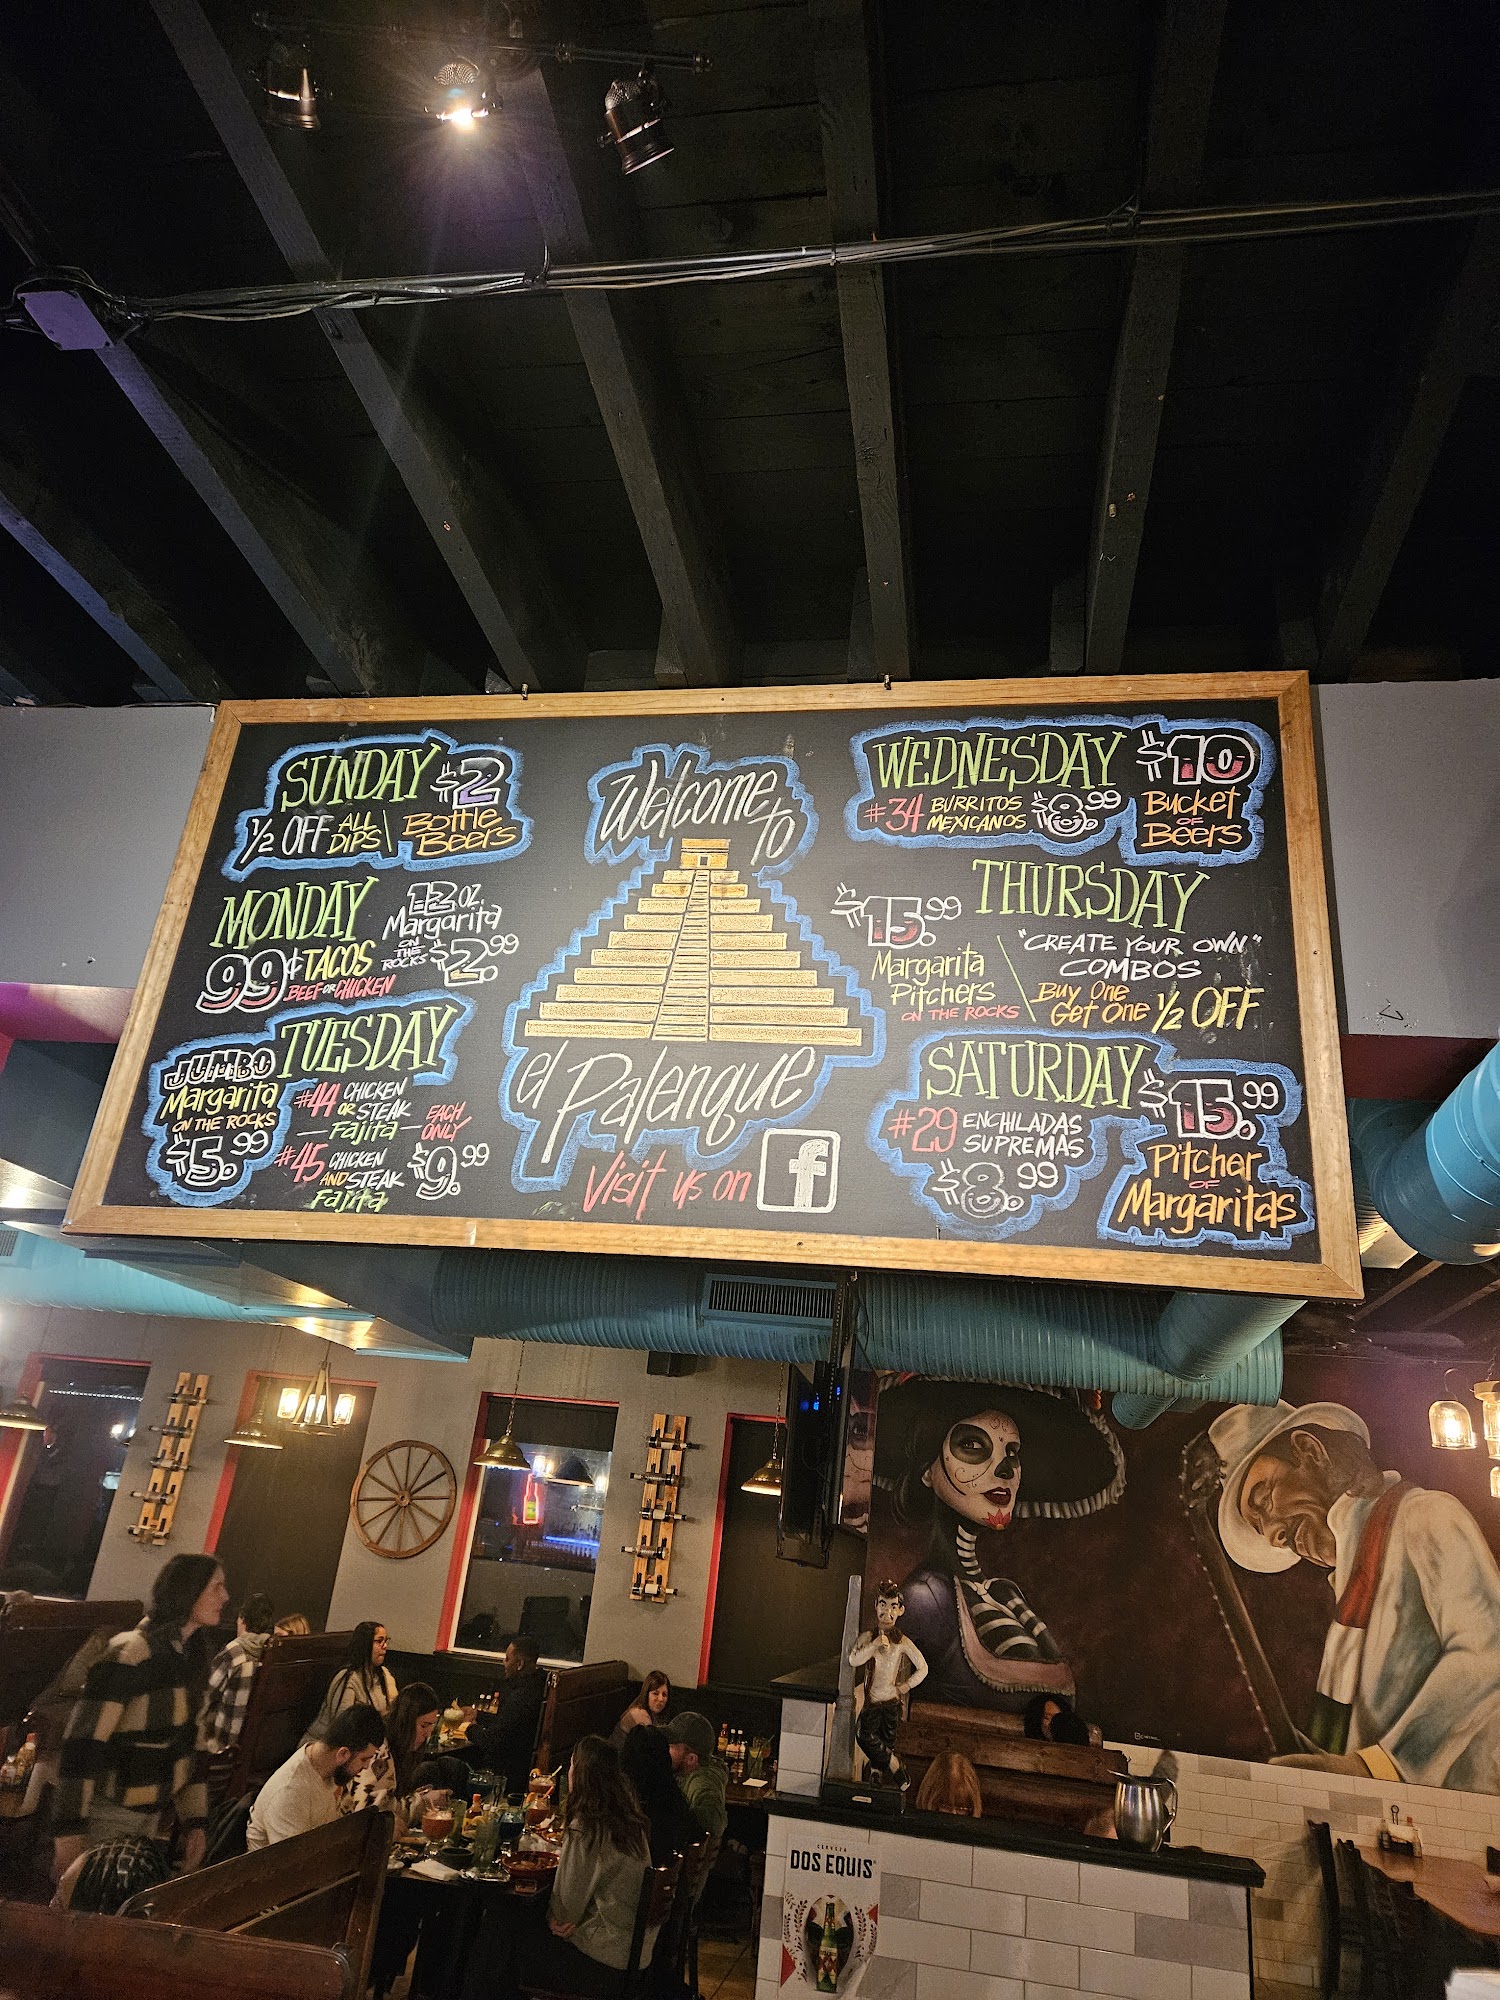 SUNDAY
1/2 OFF ALL DIPS
$2
Bottle
Beers
MONDAY
99¢ TACOS
BEEF OR CHICKEN
12 OZ.
Margarita
ON THE ROCKS
$2.99
TUESDAY
JUMBO
Margarita
ON THE ROCKS
$5.99
#44 CHICKEN
OR STEAK
Fajita
#45 CHICKEN
AND STEAK
Fajita
EACH
ONLY
$9.99
Welcome
to
el Palenque
Visit us on f
WEDNESDAY
#34 BURRITOS
MEXICANOS
$8.99
$10
Bucket
OF
Beers
THURSDAY
$15.99
Margarita
Pitchers
ON THE ROCKS
"CREATE YOUR OWN"
COMBOS
Buy One
Get One 1/2 OFF
SATURDAY
#29 ENCHILADAS
SUPREMAS
$8.99
$15.99
Pitcher
OF
Margaritas
CERVEZA
DOS EQUIS